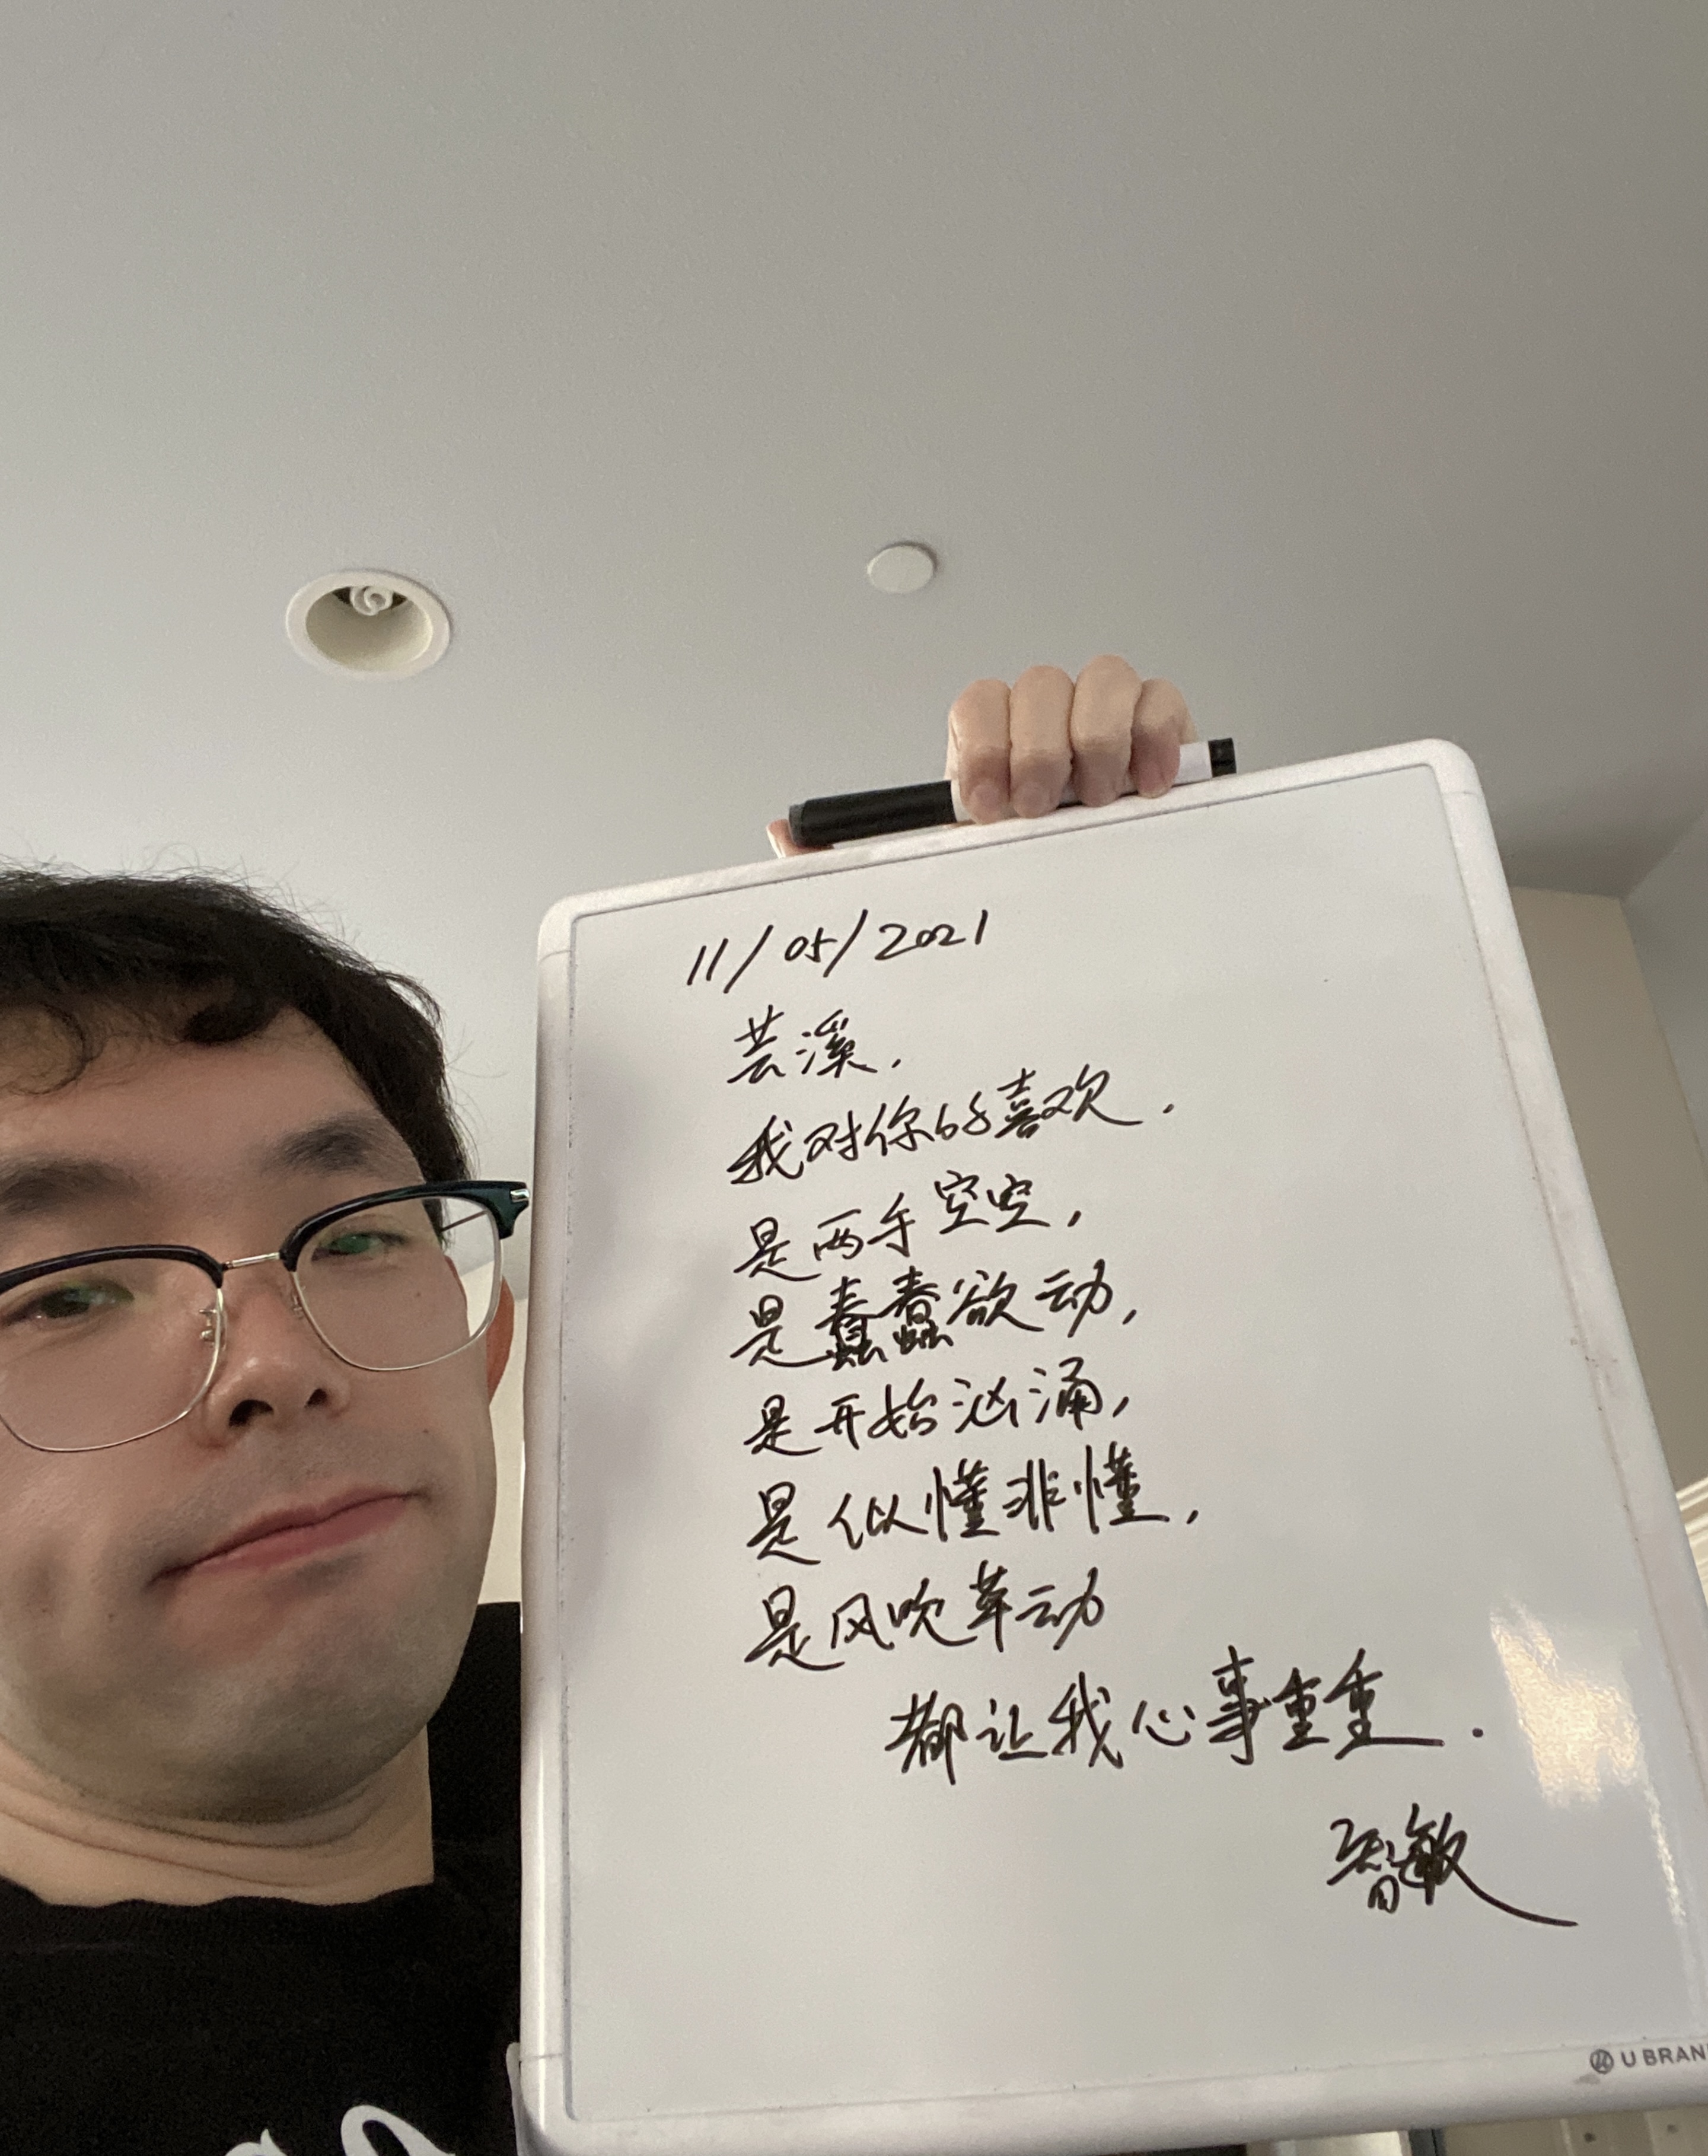 11/05/2021
芸溪,
我对你的喜欢.
是两手空空,
是蠢蠢欲动,
是开始汹涌,
是似懂非懂,
是风吹草动
都让我心事重重.
智敏
U BRAN